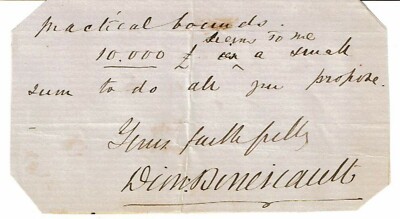 practical bounds.
seems to me
10.000 £ a small
sum to do all you propose.
Yours faithfully
Dion Boucicault